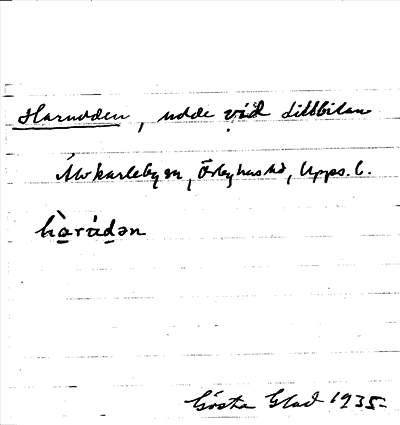 Harudden, udde vid Lillbilan
Älvkarleby sn, Örbyhus hd, Upps. l.
hàrúdən
Gösta Glad 1935